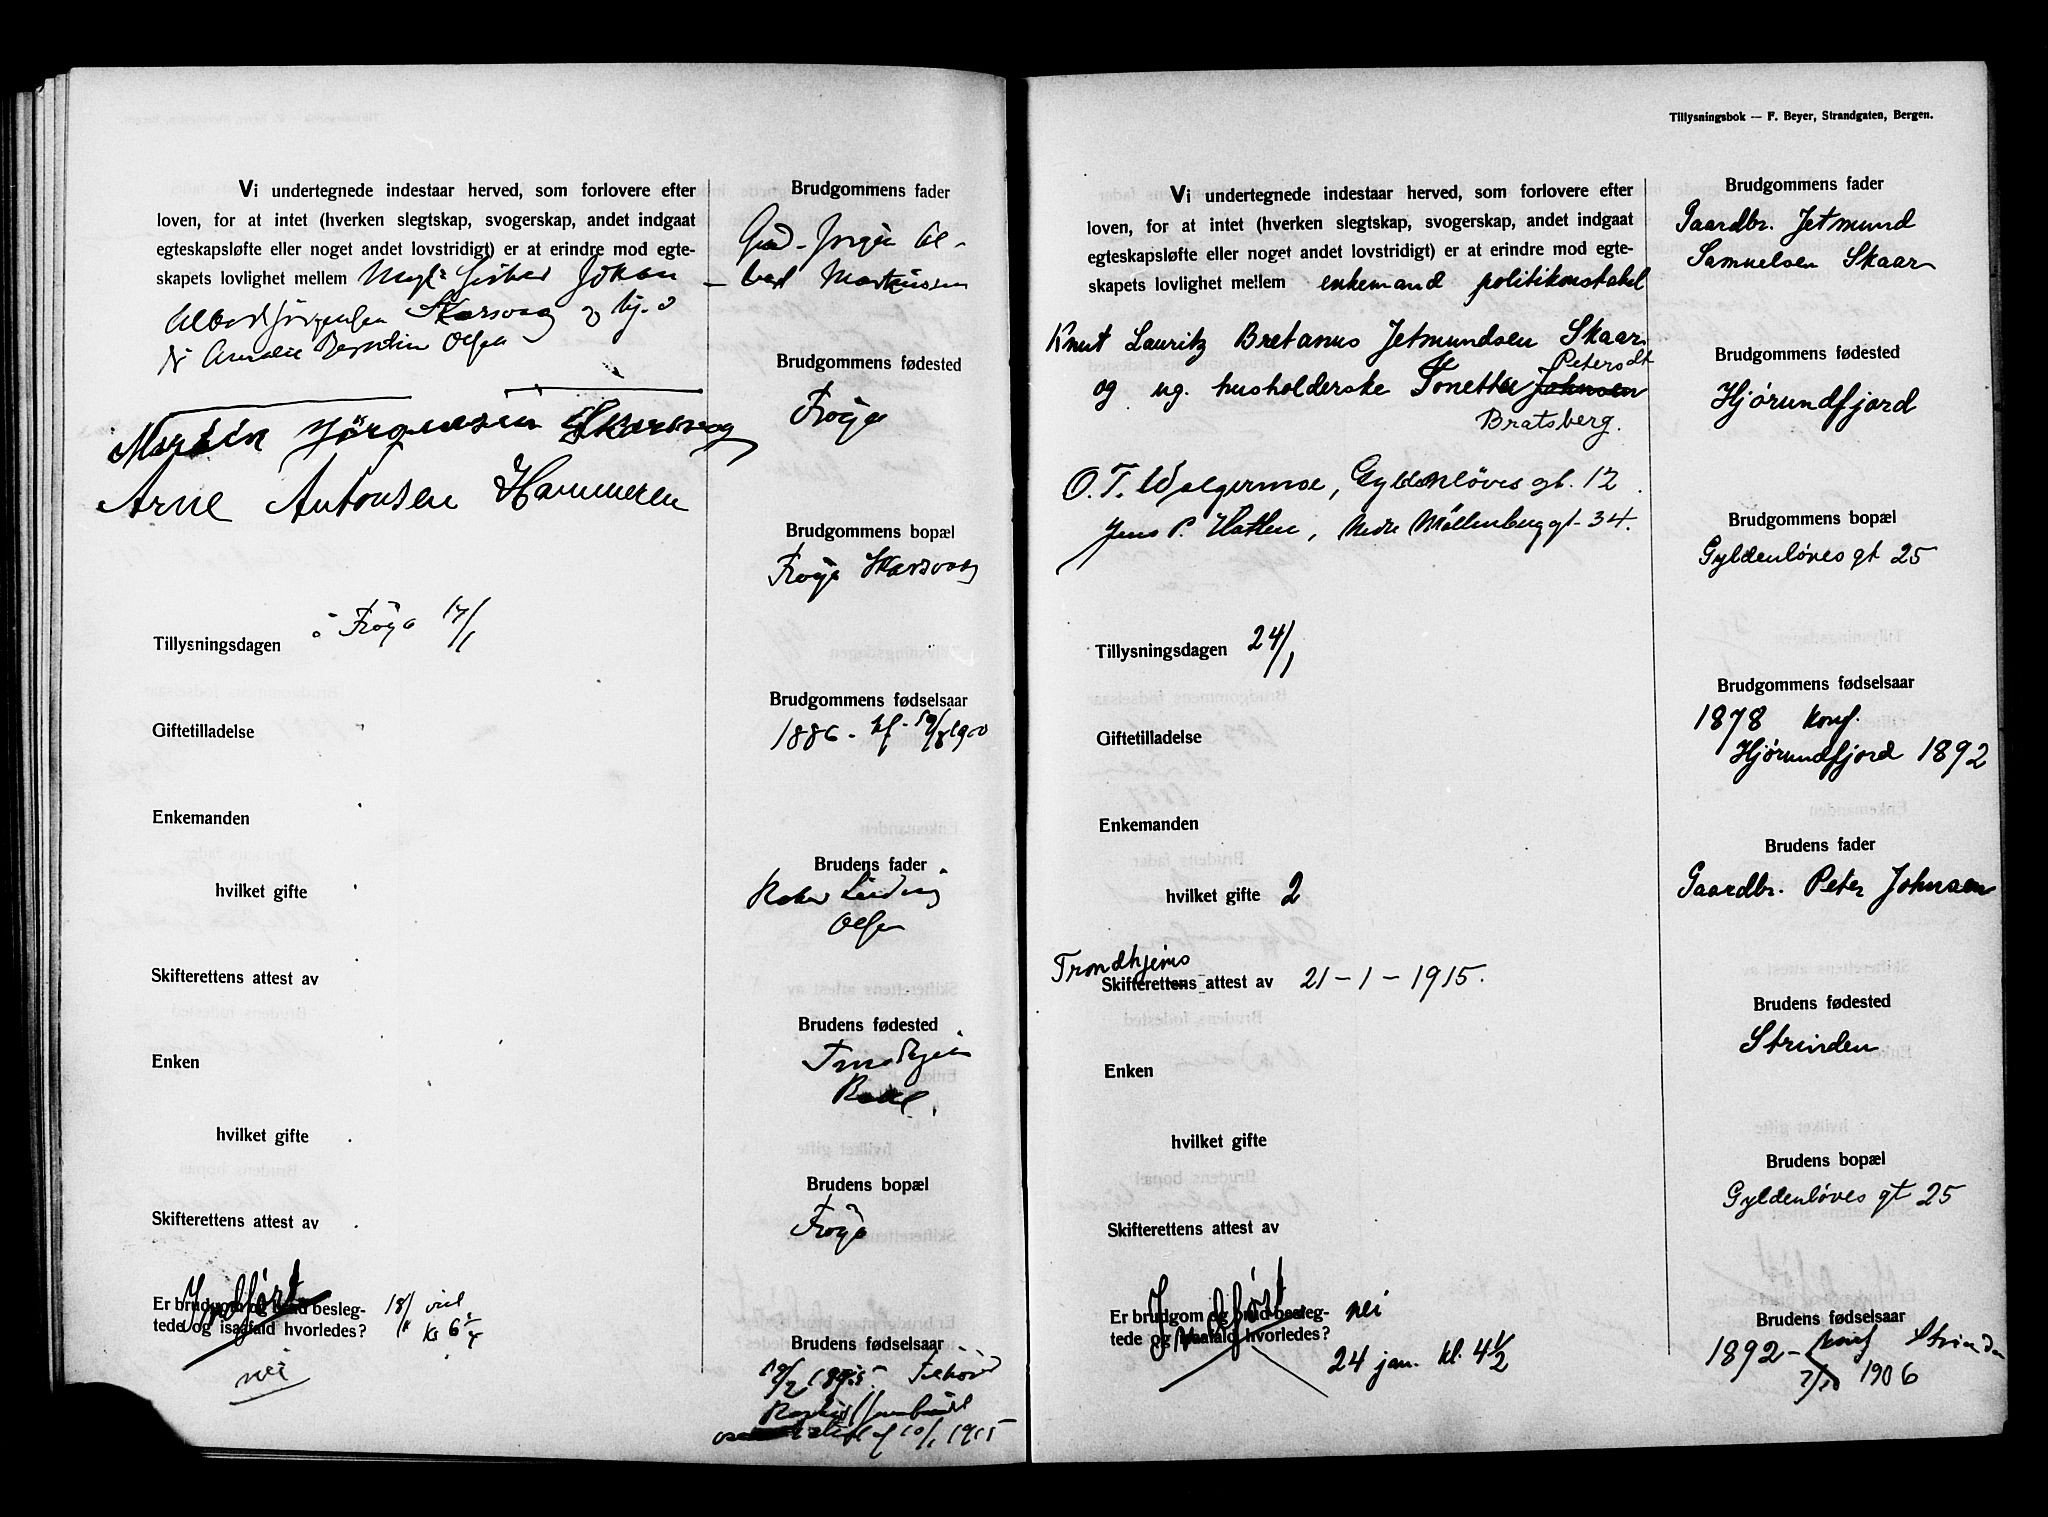 Vi undertegnede indestaar herved, som forlovere efter
loven, for at intet (hverken slegtskap, svogerskap, andet indgaat
egteskapsløfte eller noget andet lovstridigt) er at erindre mod egte-
skapets lovlighet mellem Johan
Skarsvåg
Olsen
Martin Jörgensen Skarsvog
Arne Antonsen Hammeren
Tillysningsdagen Frøya 17/1
Giftetilladelse
Enkemanden
hvilket gifte
Skifterettens attest av
Enken
hvilket gifte
Skifterettens attest av
Indført
Er brudgom og brud besleg-
tede og isaafald hvorledes?
nei
Brudgommens fader
Markussen
Brudgommens fødested
Frøya
Brudgommens bopæl
Frøya Skarsvog
Brudgommens fødselsaar
1886 - kf. 1900
Brudens fader
Ludvig
Olsen
Brudens fødested
Brudens bopæl
Frøya
Brudens fødselsaar
10/1 1915
Tillysningsbok — F. Beyer, Strandgaten, Bergen.
Vi undertegnede indestaar herved, som forlovere efter
loven, for at intet (hverken slegtskap, svogerskap, andet indgaat
egteskapsløfte eller noget andet lovstridigt) er at erindre mod egte-
skapets lovlighet mellem enkemand politikonstabel
Knut Lauritz Bretanus Jetmundsen Skaar
Petersdt
og ug. husholderske Tonette Johnsen
Bratsberg.
O. T. Gyldenløves gt. 12
Jens P. Hatlen, Nedre Möllenberg gt. 34.
Tillysningsdagen 24/1
Giftetilladelse
Enkemanden
hvilket gifte 2
Trondhjems
Skifterettens attest av 21-1-1915.
Enken
hvilket gifte
Skifterettens attest av
Indført
Er brudgom og brud besleg- nei
tede og isaafald hvorledes?
24 jan. kl. 4 1/2
Brudgommens fader
Gaardbr. Jetmund
Samuelsen Skaar
Brudgommens fødested
Hjørundfjord
Brudgommens bopæl
Gyldenløves gt 25
Brudgommens fødselsaar
1878 konf.
Hjørundfjord 1892
Brudens fader
Gaardbr. Peter Johnsen
Brudens fødested
Strinden
Brudens bopæl
Gyldenløves gt 25
Brudens fødselsaar
1892 - konf Strinden
7/10 1906